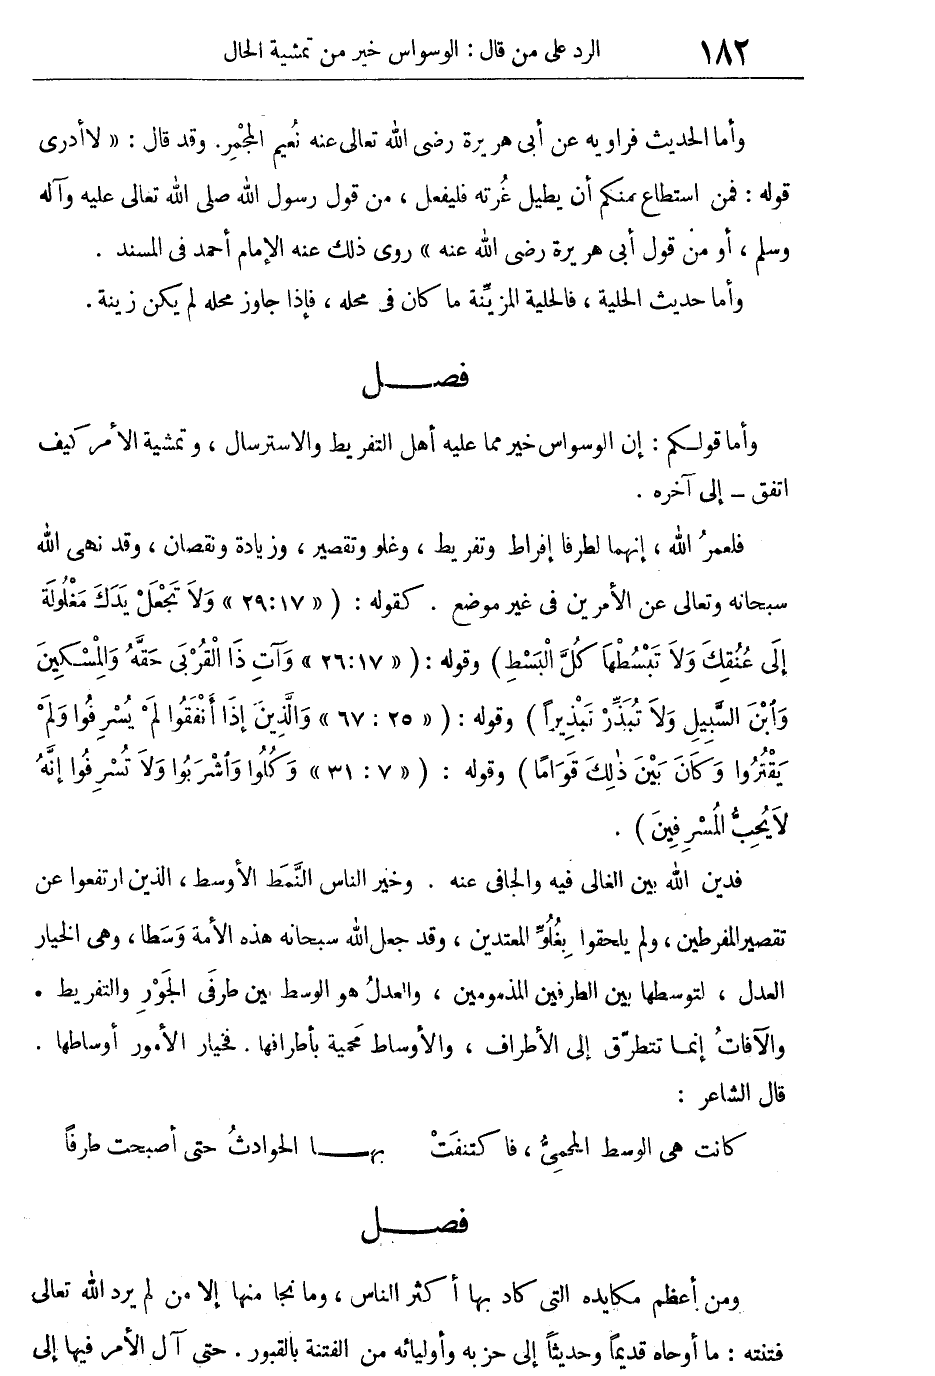 ١٨٢ الرد على من قال : الوسواس خير من تمشية الحال
وأما الحديث فراويه عن أبى هريرة رضى الله تعالى عنه نُعيم المجْمِر. وقد قال : « لا أدرى
قوله : فمن استطاع منكم أن يطيل غُرته فليفعل ، من قول رسول الله صلى الله تعالى عليه وآله
وسلم ، أو من قول أبى هريرة رضى الله عنه » روى ذلك عنه الإمام أحمد فى المسند .
وأما حديث الحلية ، فالحلية المزيِّنة ما كان فى محله ، فإذا جاوز محله لم يكن زينة .
فصـــل
وأما قولكم : إن الوسواس خير مما عليه أهل التفريط والاسترسال ، وتمشية الأمر كيف
اتفق ــ إلى آخره .
فلعمرُ الله ، إنهما لطرفا إفراط وتفريط ، وغلو وتقصير ، وزيادة ونقصان ، وقد نهى الله
سبحانه وتعالى عن الأمرين فى غير موضع . كقوله : ( « ٢٩:١٧ » وَلاَ تَجْعَلْ يَدَكَ مَغْلُولَةً
إِلَى عُنُقِكَ وَلاَ تَبْسُطْهَا كُلَّ الْبَسْطِ ) وقوله : ( « ٢٦:١٧ » وَآتِ ذَا الْقُرْبَى حَقَّهُ وَالِمْسْكِينَ
وَابْنَ السَّبِيلِ وَلاَ تُبَذِّرْ تَبْذِيراً ) وقوله : ( « ٢٥ : ٦٧ » وَالَّذِينَ إِذَا أَنْفَقُوا لَمْ يُسْرِفُوا وَلَمْ
يَقْتُرُوا وَكَانَ بَيْنَ ذٰلِكَ قَوَامًا ) وقوله : ( « ٧ : ٣١ » وَكُلُوا وَاشْرَبُوا وَلاَ تُسْرِفُوا إِنَّهُ
لاَيُحِبُّ الْمُسْرِفِينَ ) .
فدين الله بين الغالى فيه والجافى عنه . وخير الناس النَّمَط الأوسط ، الذين ارتفعوا عن
تقصير المفرطين ، ولم يلحقوا بِغُلُوِّ المعتدين ، وقد جعل الله سبحانه هذه الأمة وَسَطا ، وهى الخيار
العدل ، لتوسطها بين الطرفين المذمومين ، والعدلُ هو الوسط بين طرفَى الجَوْرِ والتفريط .
والآفاتُ إنما تتطرّق إلى الأطراف ، والأوساط مَحمية بأطرافها . فخيار الأمور أوساطها .
قال الشاعر :
كانت هى الوسط المحمِىُّ ، فاكتنفَتْ بهــــا الحوادثُ حتى أصبحت طرفاً
فصـــل
ومن أعظم مكايده التى كاد بها أكثر الناس ، وما نجا منها إلا من لم يرد الله تعالى
فتنته : ما أوحاه قديماً وحديثاً إلى حزبه وأوليائه من الفتنة بالقبور . حتى آل الأمر فيها إلى